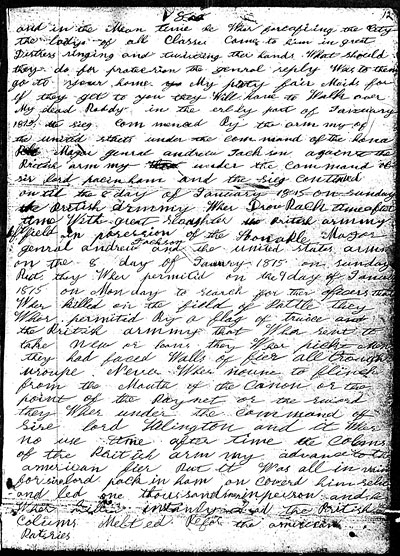 and in the Mean time he Wher forcafiring the City
the ladys of all Classes Come to him in great
Distress ringing and twisting ther hands What should
they do for protection the genral reply Was to them
go to your home My pretty fair Maids for
they gets to you they Will have to Walk over
My dead Boddy in the erly part of January
1815 the sieg commenced By the arm my of
the united stats under the command of the hona
Major genrel andrew Jackson against the
British arm my under the Command of
sir lord packenham and the sieg continued
until the 8 day of January 1815 on sunday
the British Armmy Wher Drove Back time after
time With great slaughter the British armmy
held in porcession of the Honorable Major
genral andrew Jackson and the united stats arm
on the 8 day of January 1815 on sunday
But they Wher permitid on the 9 day of Janua
1815 on Monday to search for ther officers that
Wher killed on the field of Battle they
Wher permitid By a flag of truice and
the British armmy that Wher sent to
take new or leans they Wher pickt men
they had faced Walls of fier all through
uroupe Never Wher noune to flinch
from the Mouth of the Canon or the
point of the Baynet or the sword
they Wher under the command of
Sire lord Welington and it Wher
no use time after time the Colums
of the British arm my advance to the
american fier But it Was all in vain
for sir lord pack in ham on coverd him self
and led one thousand men in person and he
Wher kild instantly and the British
Colums Melted Before the american
Bateries